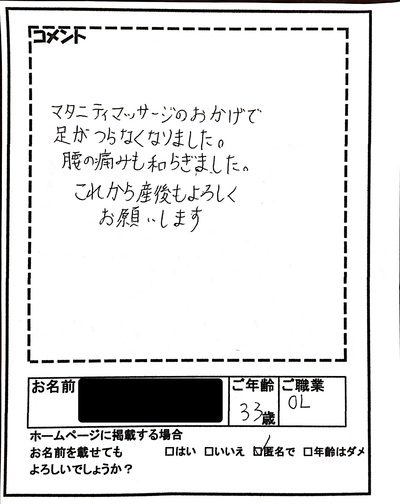 コメント
マタニティマッサージのおかげで
足がつらなくなりました。
腰の痛みも和らぎました。
これから産後もよろしく
お願いします
お名前 ご年齢 33歳 ご職業 OL
ホームページに掲載する場合
お名前を載せても □はい □いいえ ☑匿名で □年齢はダメ
よろしいでしょうか？